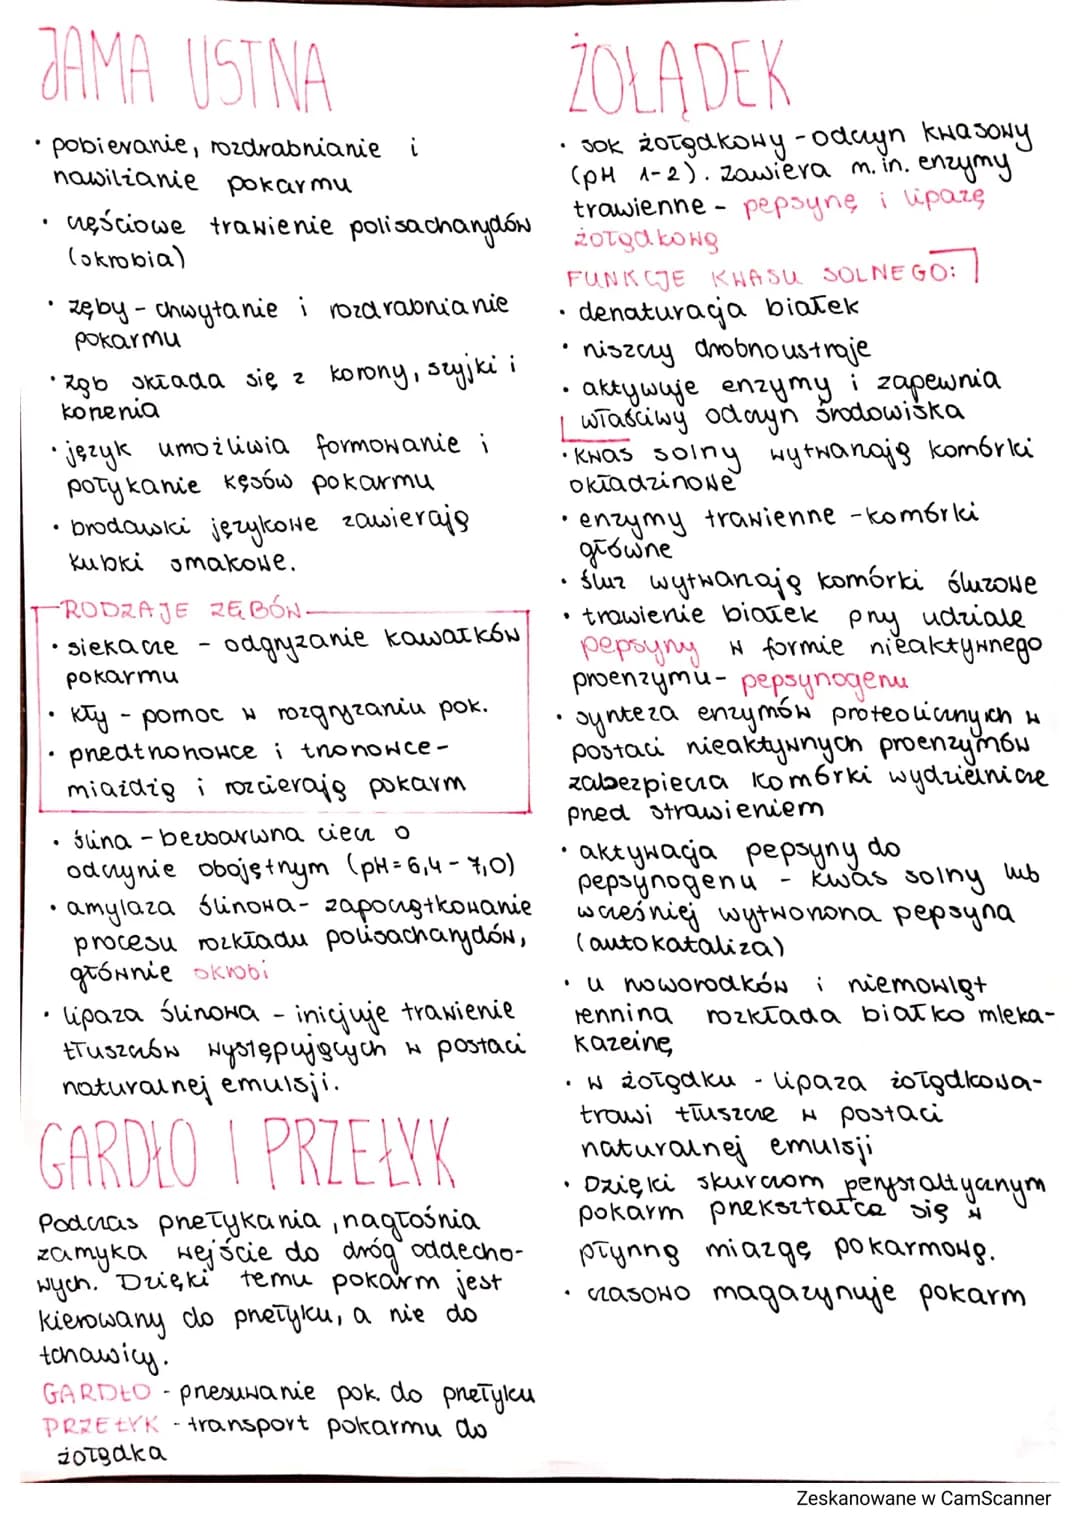 JAMA USTNA
· pobieranie, rozdrabnianie i
nawilżanie pokarmu
· częściowe trawienie polisacharydów
(skrobia)
· zęby - chwytanie i rozdrabnianie
pokarmu
· ząb składa się z korony, szyjki i
korzenia
· język umożliwia formowanie i
połykanie kęsów pokarmu
· brodawki językowe zawierają
kubki smakowe.
RODZAJE ZĘBÓW
· siekacze - odgryzanie kawałków
pokarmu
· kły - pomoc w rozgryzaniu pok.
· przedtrzonowce i trzonowce -
miażdżą i rozcierają pokarm
· ślina - bezbarwna ciecz o
odczynie obojętnym (pH = 6,4 - 7,0)
· amylaza ślinowa - zapoczątkowanie
procesu rozkładu polisacharydów,
głównie skrobi
· lipaza ślinowa - inicjuje trawienie
tłuszczów występujących w postaci
naturalnej emulsji.
GARDŁO I PRZEŁYK
Podczas przełykania, nagłośnia
zamyka wejście do dróg oddecho-
wych. Dzięki temu pokarm jest
kierowany do przełyku, a nie do
tchawicy.
GARDŁO - przesuwanie pok. do przełyku
PRZEŁYK - transport pokarmu do
żołądka
ŻOŁĄDEK
· sok żołądkowy - odczyn kwasowy
(pH 1-2). Zawiera m.in. enzymy
trawienne - pepsynę i lipazę
żołądkową
FUNKCJE KWASU SOLNEGO:
· denaturacja białek
· niszczy drobnoustroje
· aktywuje enzymy i zapewnia
właściwy odczyn środowiska
· kwas solny wytwarzają komórki
okładzinowe
· enzymy trawienne - komórki
główne
· śluz wytwarzają komórki śluzowe
· trawienie białek przy udziale
pepsyny w formie nieaktywnego
proenzymu - pepsynogenu
· synteza enzymów proteolicznych w
postaci nieaktywnych proenzymów
zabezpiecza komórki wydzielnicze
przed strawieniem
· aktywacja pepsyny do
pepsynogenu - kwas solny lub
wcześniej wytworzona pepsyna
(autokataliza)
· u noworodków i niemowląt
rennina rozkłada białko mleka -
kazeinę
· w żołądku - lipaza żołądkowa -
trawi tłuszcze w postaci
naturalnej emulsji
· Dzięki skurczom perystaltycznym
pokarm przekształca się w
płynną miazgę pokarmową.
· czasowo magazynuje pokarm
Zeskanowane w CamScanner